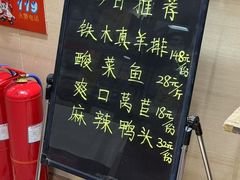 119
今日推荐
铁木真羊排 148元/份
酸菜鱼 28元/斤
爽口莴苣 18元/份
麻辣鸭头 32元/份